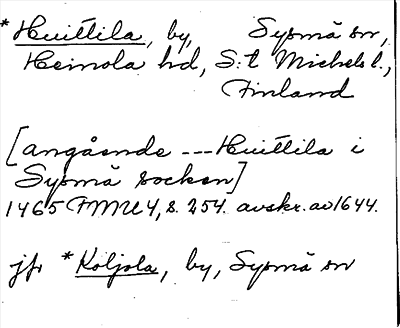 *Huittila, by, Sysmä sn,
Heinola hd, S:t Michels l.,
Finland
[angående --- Huittila i
Sysmä socken]
1465 FMU 4, s. 254. avskr. av 1644.
jfr *Koljola, by, Sysmä sn